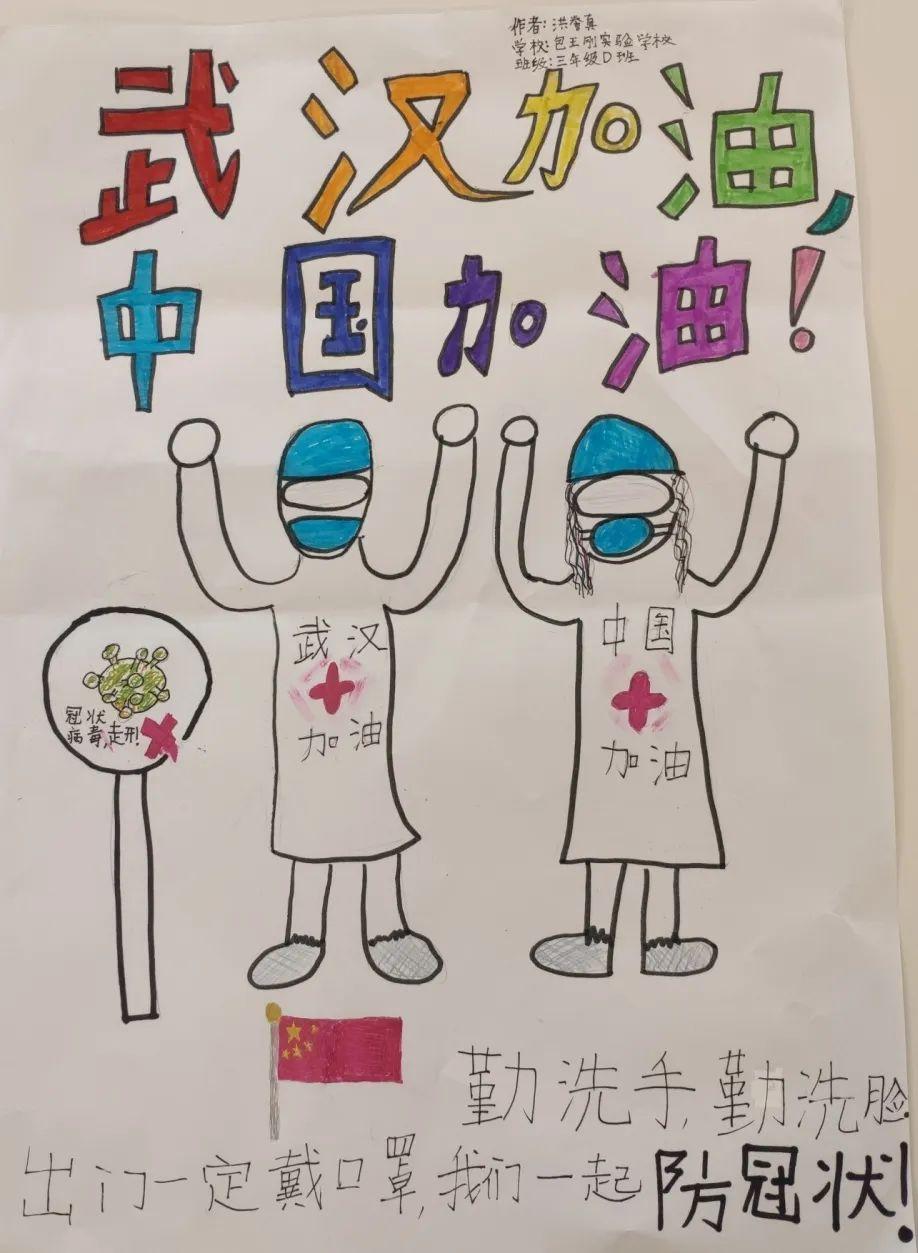 作者:洪誉真
学校:包玉刚实验学校
班级:三年级D班
武汉加油,
中国加油!
武汉
加油
中国
加油
冠状
病毒,走开!
勤洗手,勤洗脸
出门一定戴口罩,我们一起防冠状!